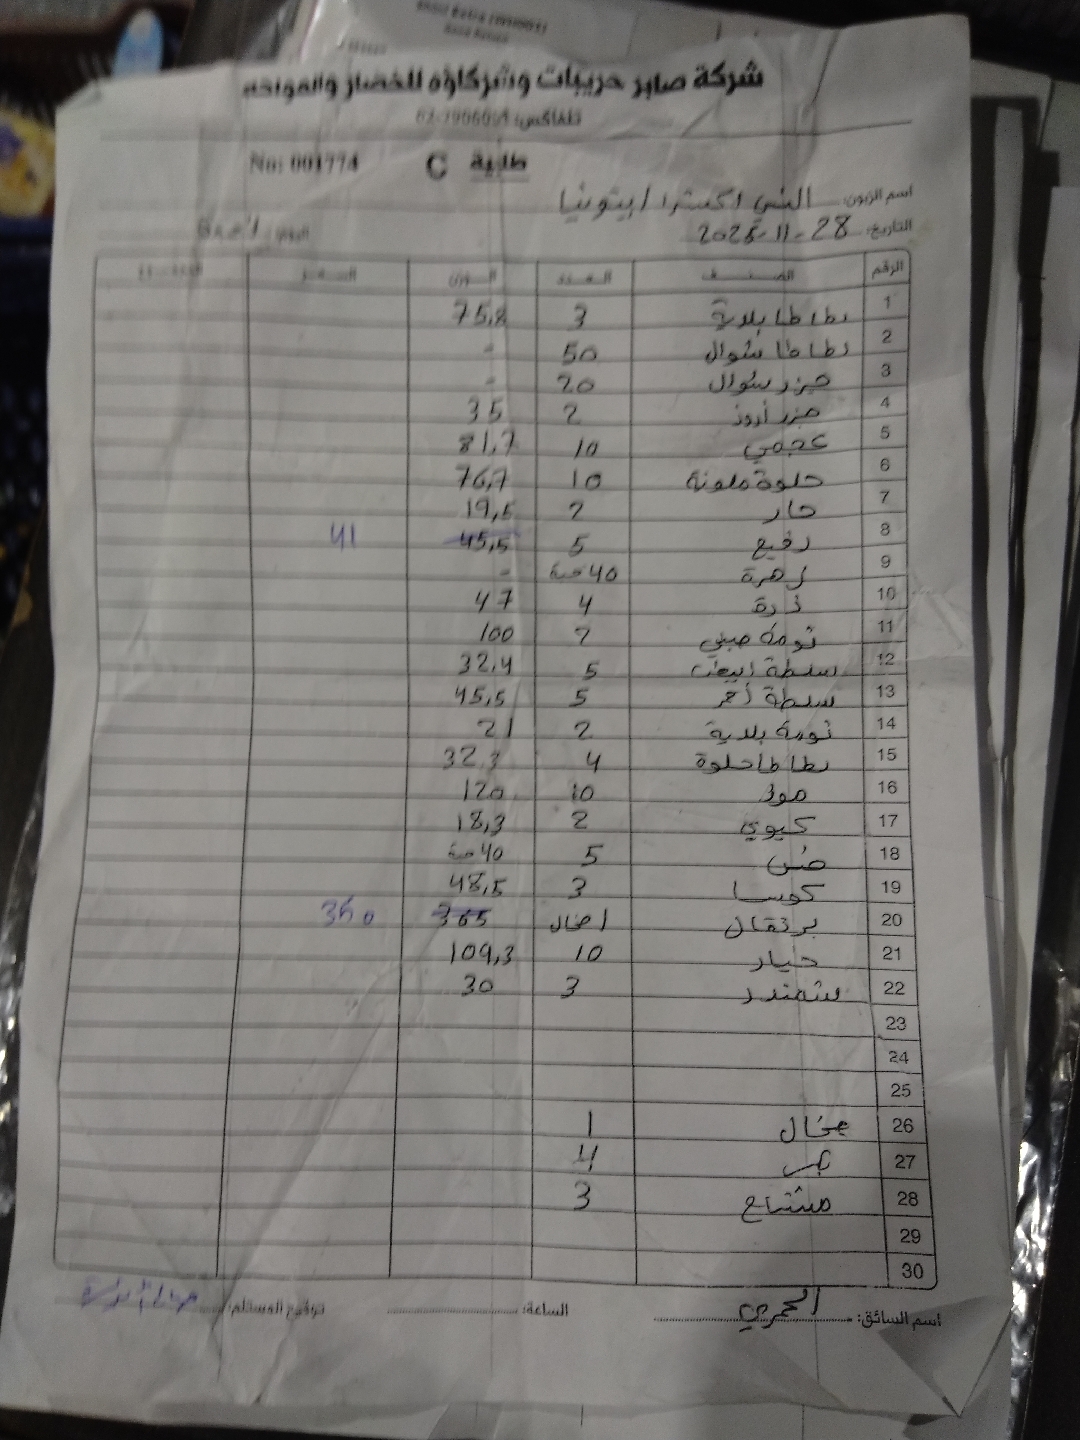 شركة صابر حريبات وشركاؤه للخضار والفواكه
تلفاكس:
No: 001774 C طلبية
اسم الزبون: اكسترا / بيتونيا
التاريخ: 28-11-2025 اليوم: الجمعة
الرقم الصنف العدد الوزن السعر
1 بطاطا بلدية 3 75,8
2 بطاطا شوال 50 -
3 جزر شوال 20 -
4 جزر 2 35
5 عجمي 10 81,7
6 حلوة ملونة 10 76,7
7 حار 2 19,5
8 رفيع 5 45,5 41
9 زهرة 40 حبة -
10 ذرة 4 47
11 تومة صيني 2 100
12 سلطة ابيض 5 32,4
13 سلطة أحمر 5 45,5
14 تومة بلدية 2 21
15 بطاطا حلوة 4 32,3
16 موز 10 120
17 كيوي 2 18,3
18 خس 5 40 حبة
19 كوسا 3 48,5
20 برتقال 365 350
21 خيار 10 109,3
22 شمندر 3 30
23
24
25
26 1
27 4
28 مشتاح 3
29
30
اسم السائق: الحمري الساعة: توقيع المستلم: